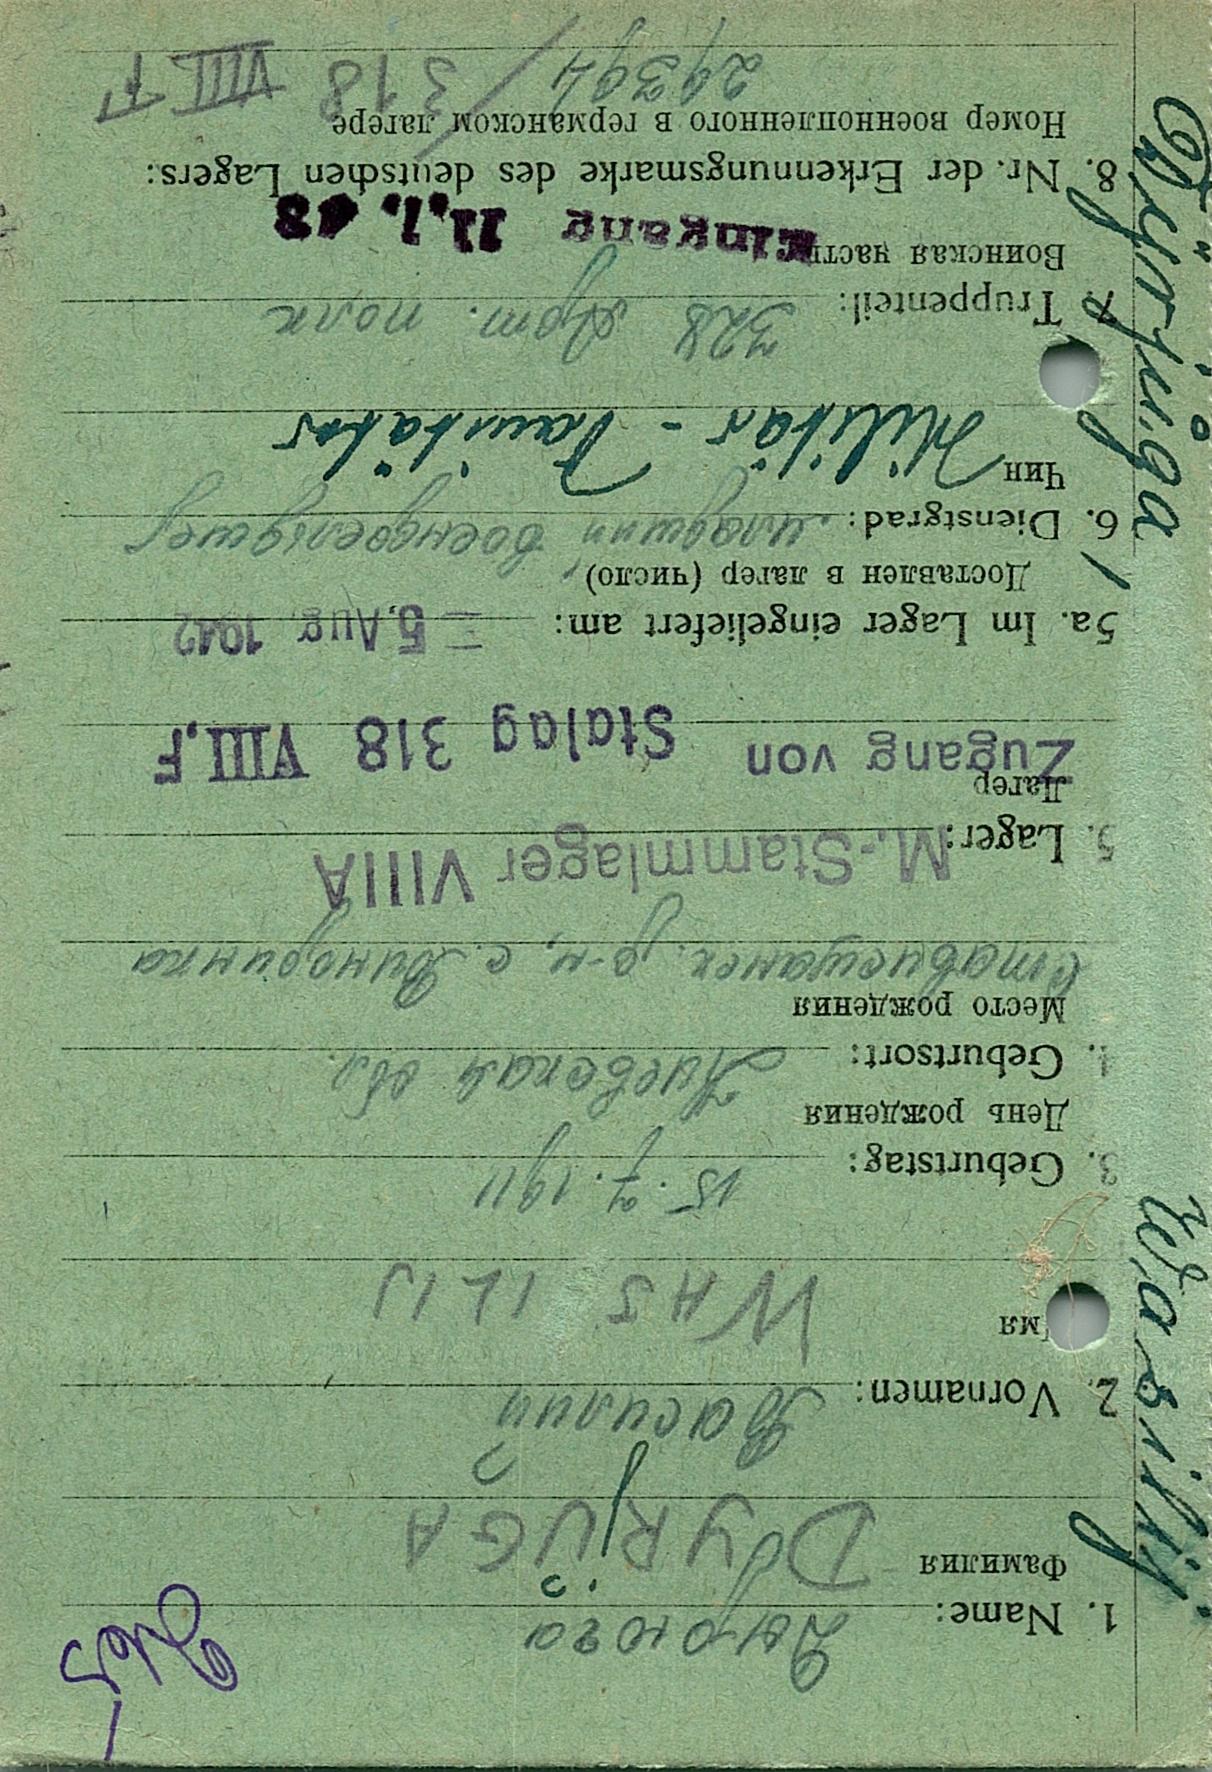 1. Name: Дырюга
Фамилия
DYRJUGA
2. Vornamen: Василий
Имя
WASILIJ
3. Geburtstag: 15.7.1911
День рождения
4. Geburtsort: Киевская обл.
Место рождения
Ставищанск. р-н, с. Винодринка
5. Lager: M.-Stammlager VIIIA
Лагер
Zugang von Stalag 318 VIII.F
5a. Im Lager eingeliefert am: = 5. Aug. 1942
Доставлен в лагер (число)
6. Dienstgrad: младший военфельдшер
Чин Militär - Sanitäter
7. Truppenteil: 328 Арт. полк
Воинская часть
Eingang 11.1.43
8. Nr. der Erkennungsmarke des deutschen Lagers:
Номер военнопленного в германском лагере
29394 / 318 VIII F
Wasilij